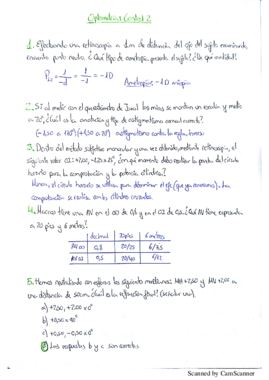 Optometría Control 2
1. Efectuando una retinoscopía a 1m de distancia del ojo del sujeto examinando
encuentro punto neutro. ¿Qué tipo de ametropía presenta el sujeto? ¿De qué cantidad?
= 1/-d = 1/-1 = -1D
Ametropía: -1D miopía
2. Si al medir con el queratómetro de Javal las miras se montan un escalón y medio
a 20°, ¿Cuál es la ametropía y tipo de astigmatismo corneal
3. Dentro del método subjetivo monocular y una vez obtenido, mediante retinoscopía, el
siguiente valor OI: +2,00, -1,25 x 25°, ¿en qué momento debo realizar la prueba del círculo
horario para la comprobación y la potencia cilíndrica?
Nunca, el círculo horario se utiliza para determinar el eje
comprobación se realiza con los cilindros cruzados.
4. Macarena tiene una AV en el OD de 0,8 y en el OI de 0,5. ¿Qué AV tiene expresada
a 20 pies y 6 metros?
decimal 20 pies 6 metros
AV OD 0,8 20/25 6/7,5
AV OI 0,5 20/40 6/12
5. Hemos neutralizado con esferas los siguientes meridianos: MH +2,50 y MV +2,00 a
una distancia de 50cm. ¿Cuál es la refracción final?
a) +2,50, +2,00 x 0°
b) +0,50 x 90°
c) +0,50, -0,50 x 0°
d) Las respuestas b y c son correctas
Scanned by CamScanner